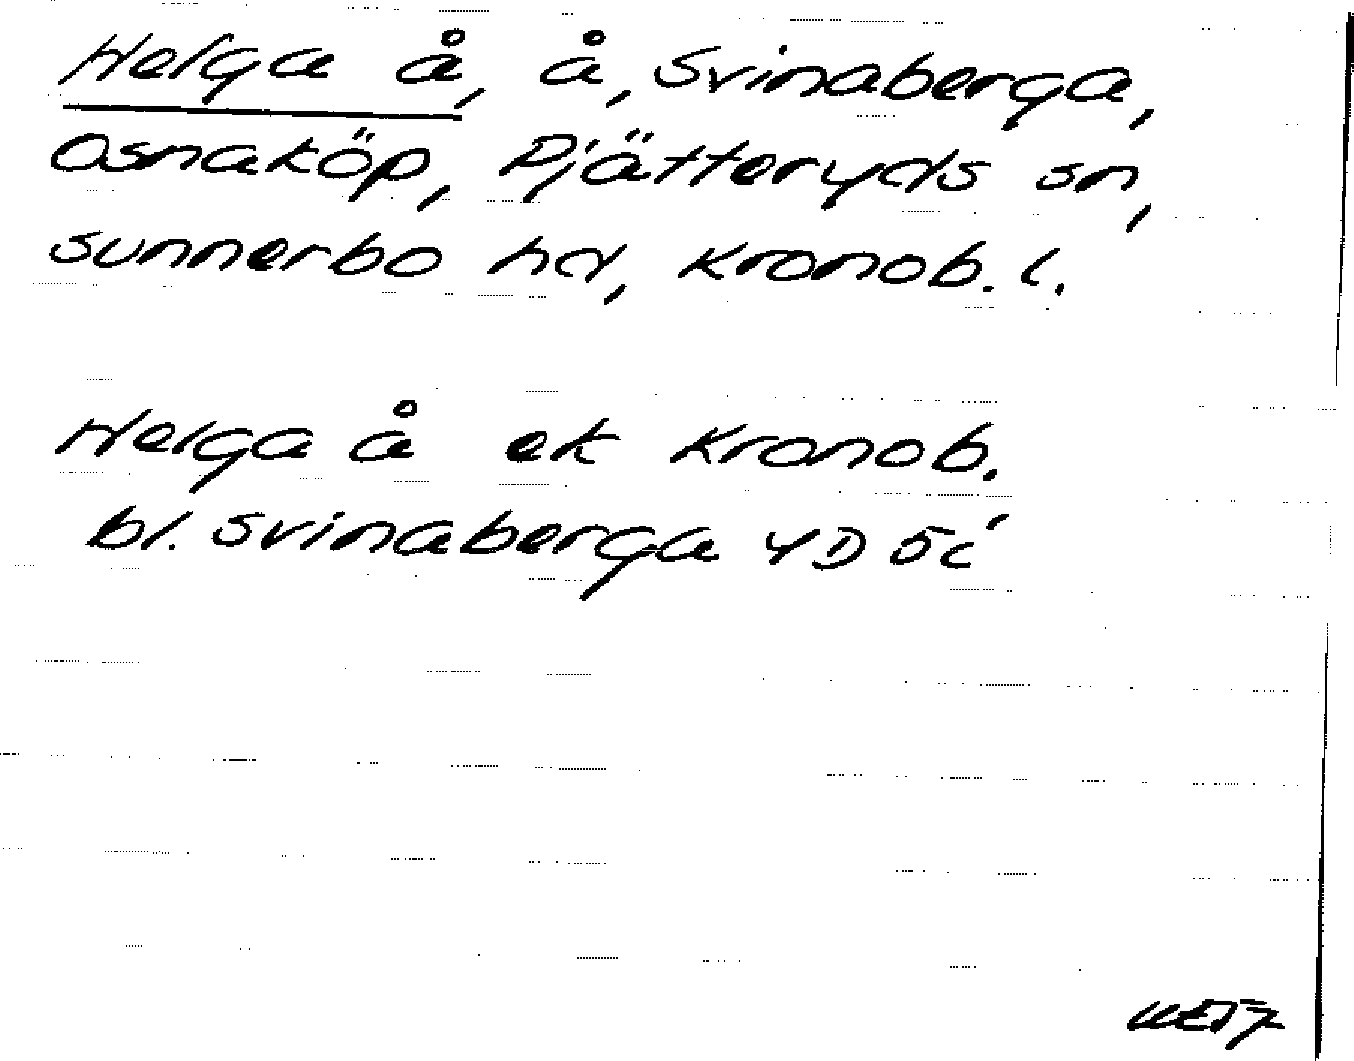 Helga å, å, Svinaberga,
Osnaköp, Pjätteryds sn,
Sunnerbo hd, Kronob. l.
Helga å ek Kronob.
bl. Svinaberga 4D 5c